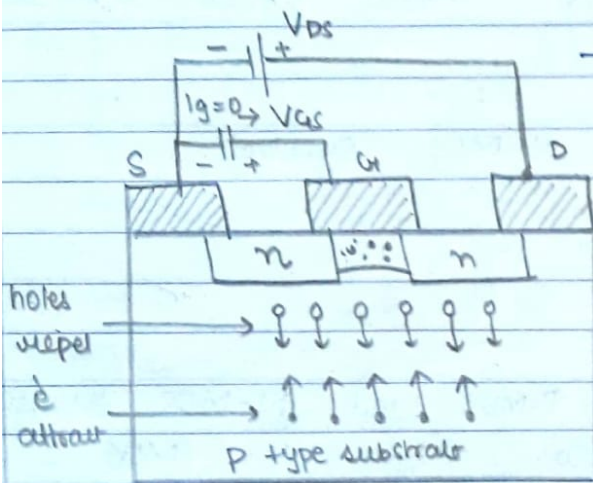 - VDS +
Ig=0 → VGS
S - + G D
n n
holes
repel
e
attract
P type substrate